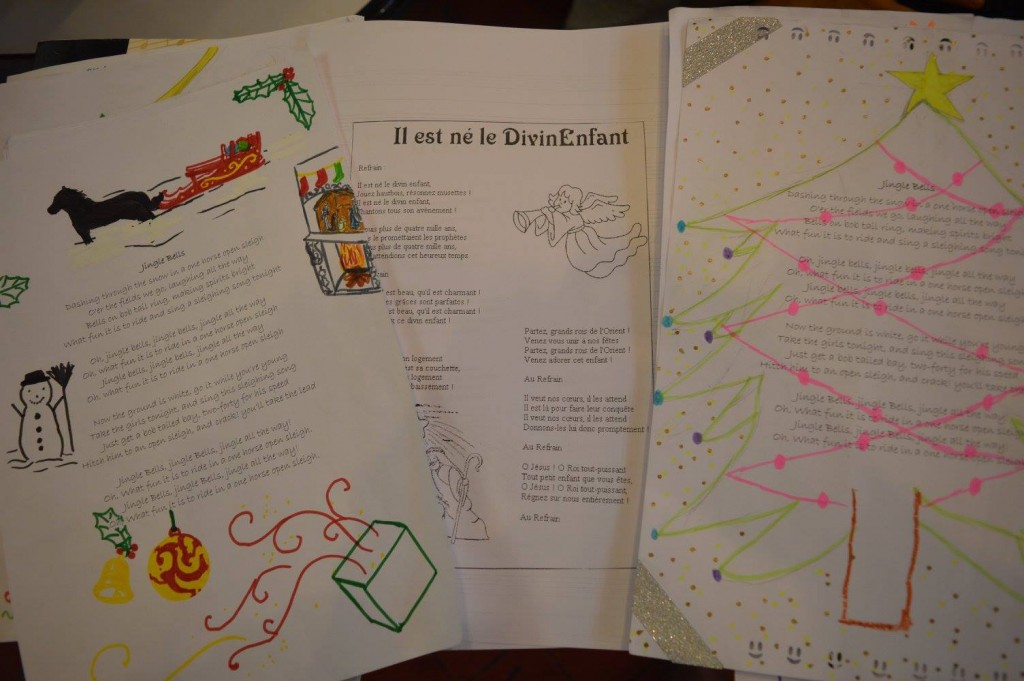 Jingle Bells
Dashing through the snow in a one horse open sleigh
O'er the fields we go, laughing all the way
Bells on bob tail ring, making spirits bright
What fun it is to ride and sing a sleighing song tonight
Oh, jingle bells, jingle bells, jingle all the way
Oh, what fun it is to ride in a one horse open sleigh
Jingle bells, jingle bells, jingle all the way
Oh, what fun it is to ride in a one horse open sleigh
Now the ground is white, go it while you're young
Take the girls tonight, and sing this sleighing song
Just get a bob tailed bay, two-forty for his speed
Hitch him to an open sleigh, and crack! you'll take the lead
Jingle Bells, Jingle Bells, Jingle all the way!
Oh, What fun it is to ride in a one horse open sleigh.
Jingle Bells, Jingle Bells, Jingle all the way!
What fun it is to ride in a one horse open sleigh.
Il est né le DivinEnfant
Refrain
Il est né le divin enfant,
Jouez hautbois, résonnez musettes !
Il est né le divin enfant,
chantons tous son avènement !
plus de quatre mille ans,
le promettaient les prophètes
plus de quatre mille ans,
attendions cet heureux temps
est beau, qu'il est charmant !
grâces sont parfaites !
est beau, qu'il est charmant !
ce divin enfant !
logement
est sa couchette,
logement
abaissement !
Partez, grands rois de l'Orient !
Venez vous unir à nos fêtes
Partez, grands rois de l'Orient !
Venez adorer cet enfant !
Au Refrain
Il veut nos cœurs, il les attend :
Il est là pour faire leur conquête
Il veut nos cœurs, il les attend :
Donnons-les lui donc promptement !
Au Refrain
O Jésus ! O Roi tout-puissant
Tout petit enfant que vous êtes,
O Jésus ! O Roi tout-puissant,
Régnez sur nous entièrement !
Au Refrain
Jingle Bells
Dashing through the snow in a one horse open
O'er the fields we go, laughing all the way
Bells on bob tail ring, making spirits bright
What fun it is to ride and sing a sleighing song
Oh, jingle bells, jingle bells, jingle all the way
Oh, what fun it is to ride in a one horse open
Jingle bells, jingle bells, jingle all the way
Oh, what fun it is to ride in a one horse open
Now the ground is white, go it while you're
Take the girls tonight, and sing this sleighing
Just get a bob tailed bay, two-forty for his
Hitch him to an open sleigh, and crack! you'll take
Jingle Bells, Jingle Bells, Jingle all the
Oh, What fun it is to ride in a one horse open
Jingle Bells, Jingle Bells, Jingle all the
Oh, What fun it is to ride in a one horse open